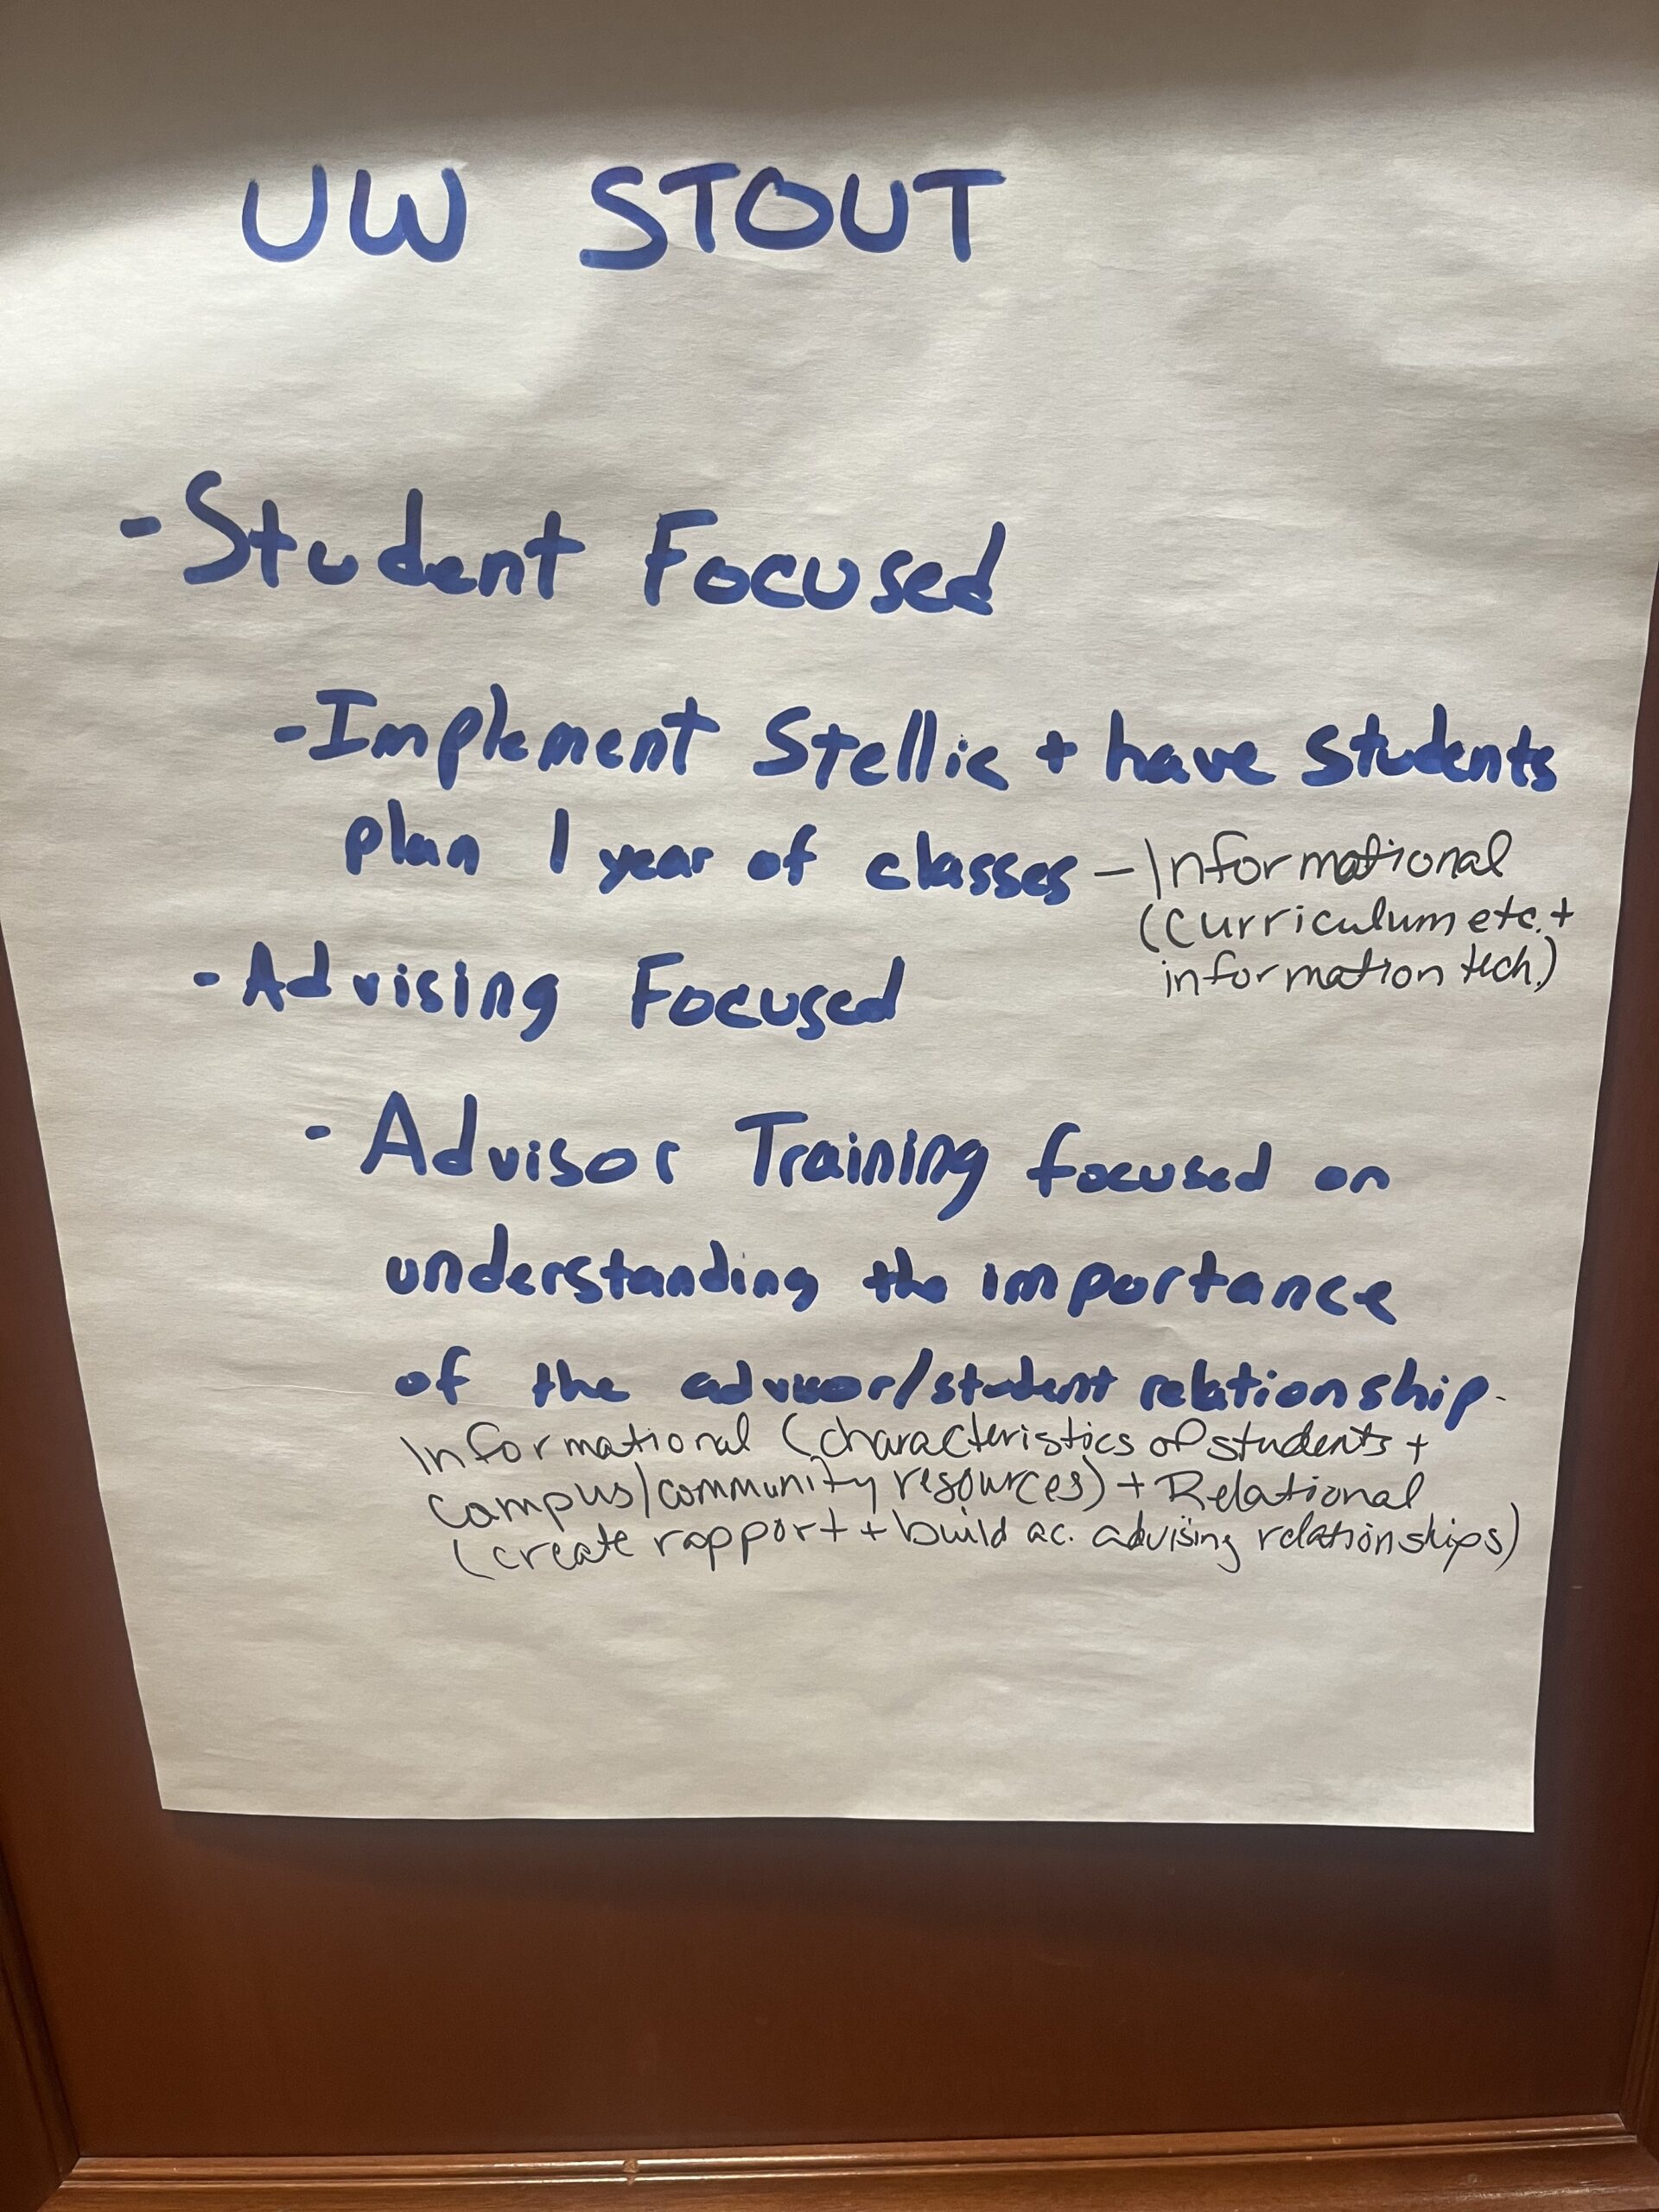 UW STOUT
- Student Focused
- Implement Stellic + have students
plan 1 year of classes - Informational
(curriculum etc. +
information tech.)
- Advising Focused
- Advisor Training focused on
understanding the importance
of the advisor/student relationship.
Informational (characteristics of students +
campus/community resources) + Relational
(create rapport + build ac. advising relationships)